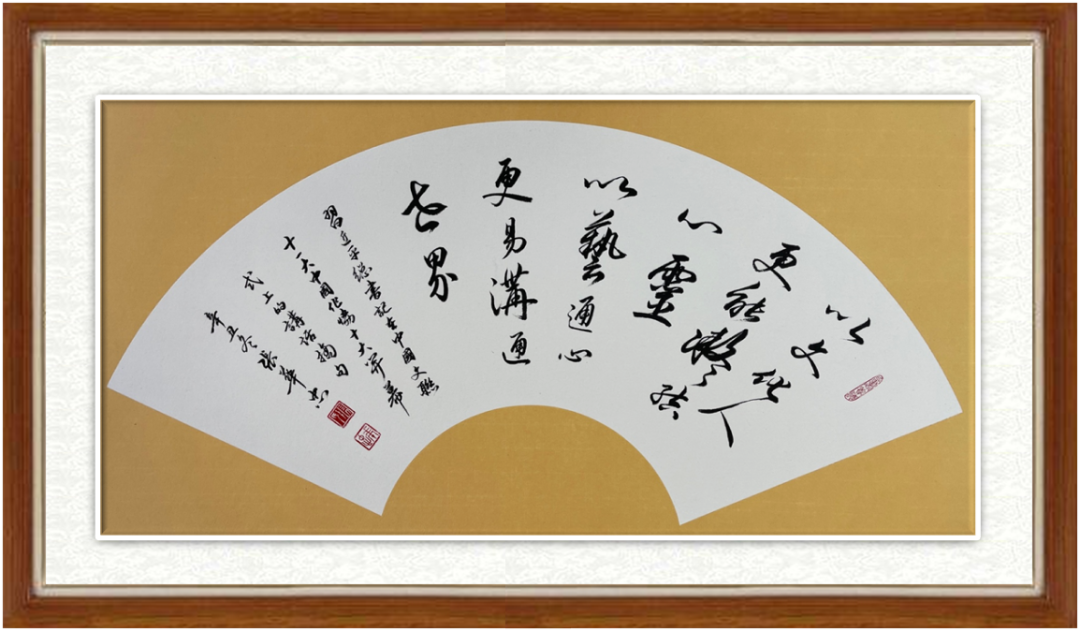 以文化人
更能凝結
心靈
以藝通心
更易溝通
世界
習近平總書記在中國文聯
十一大中國作協十大開幕
式上的講話摘句
辛丑冬張華